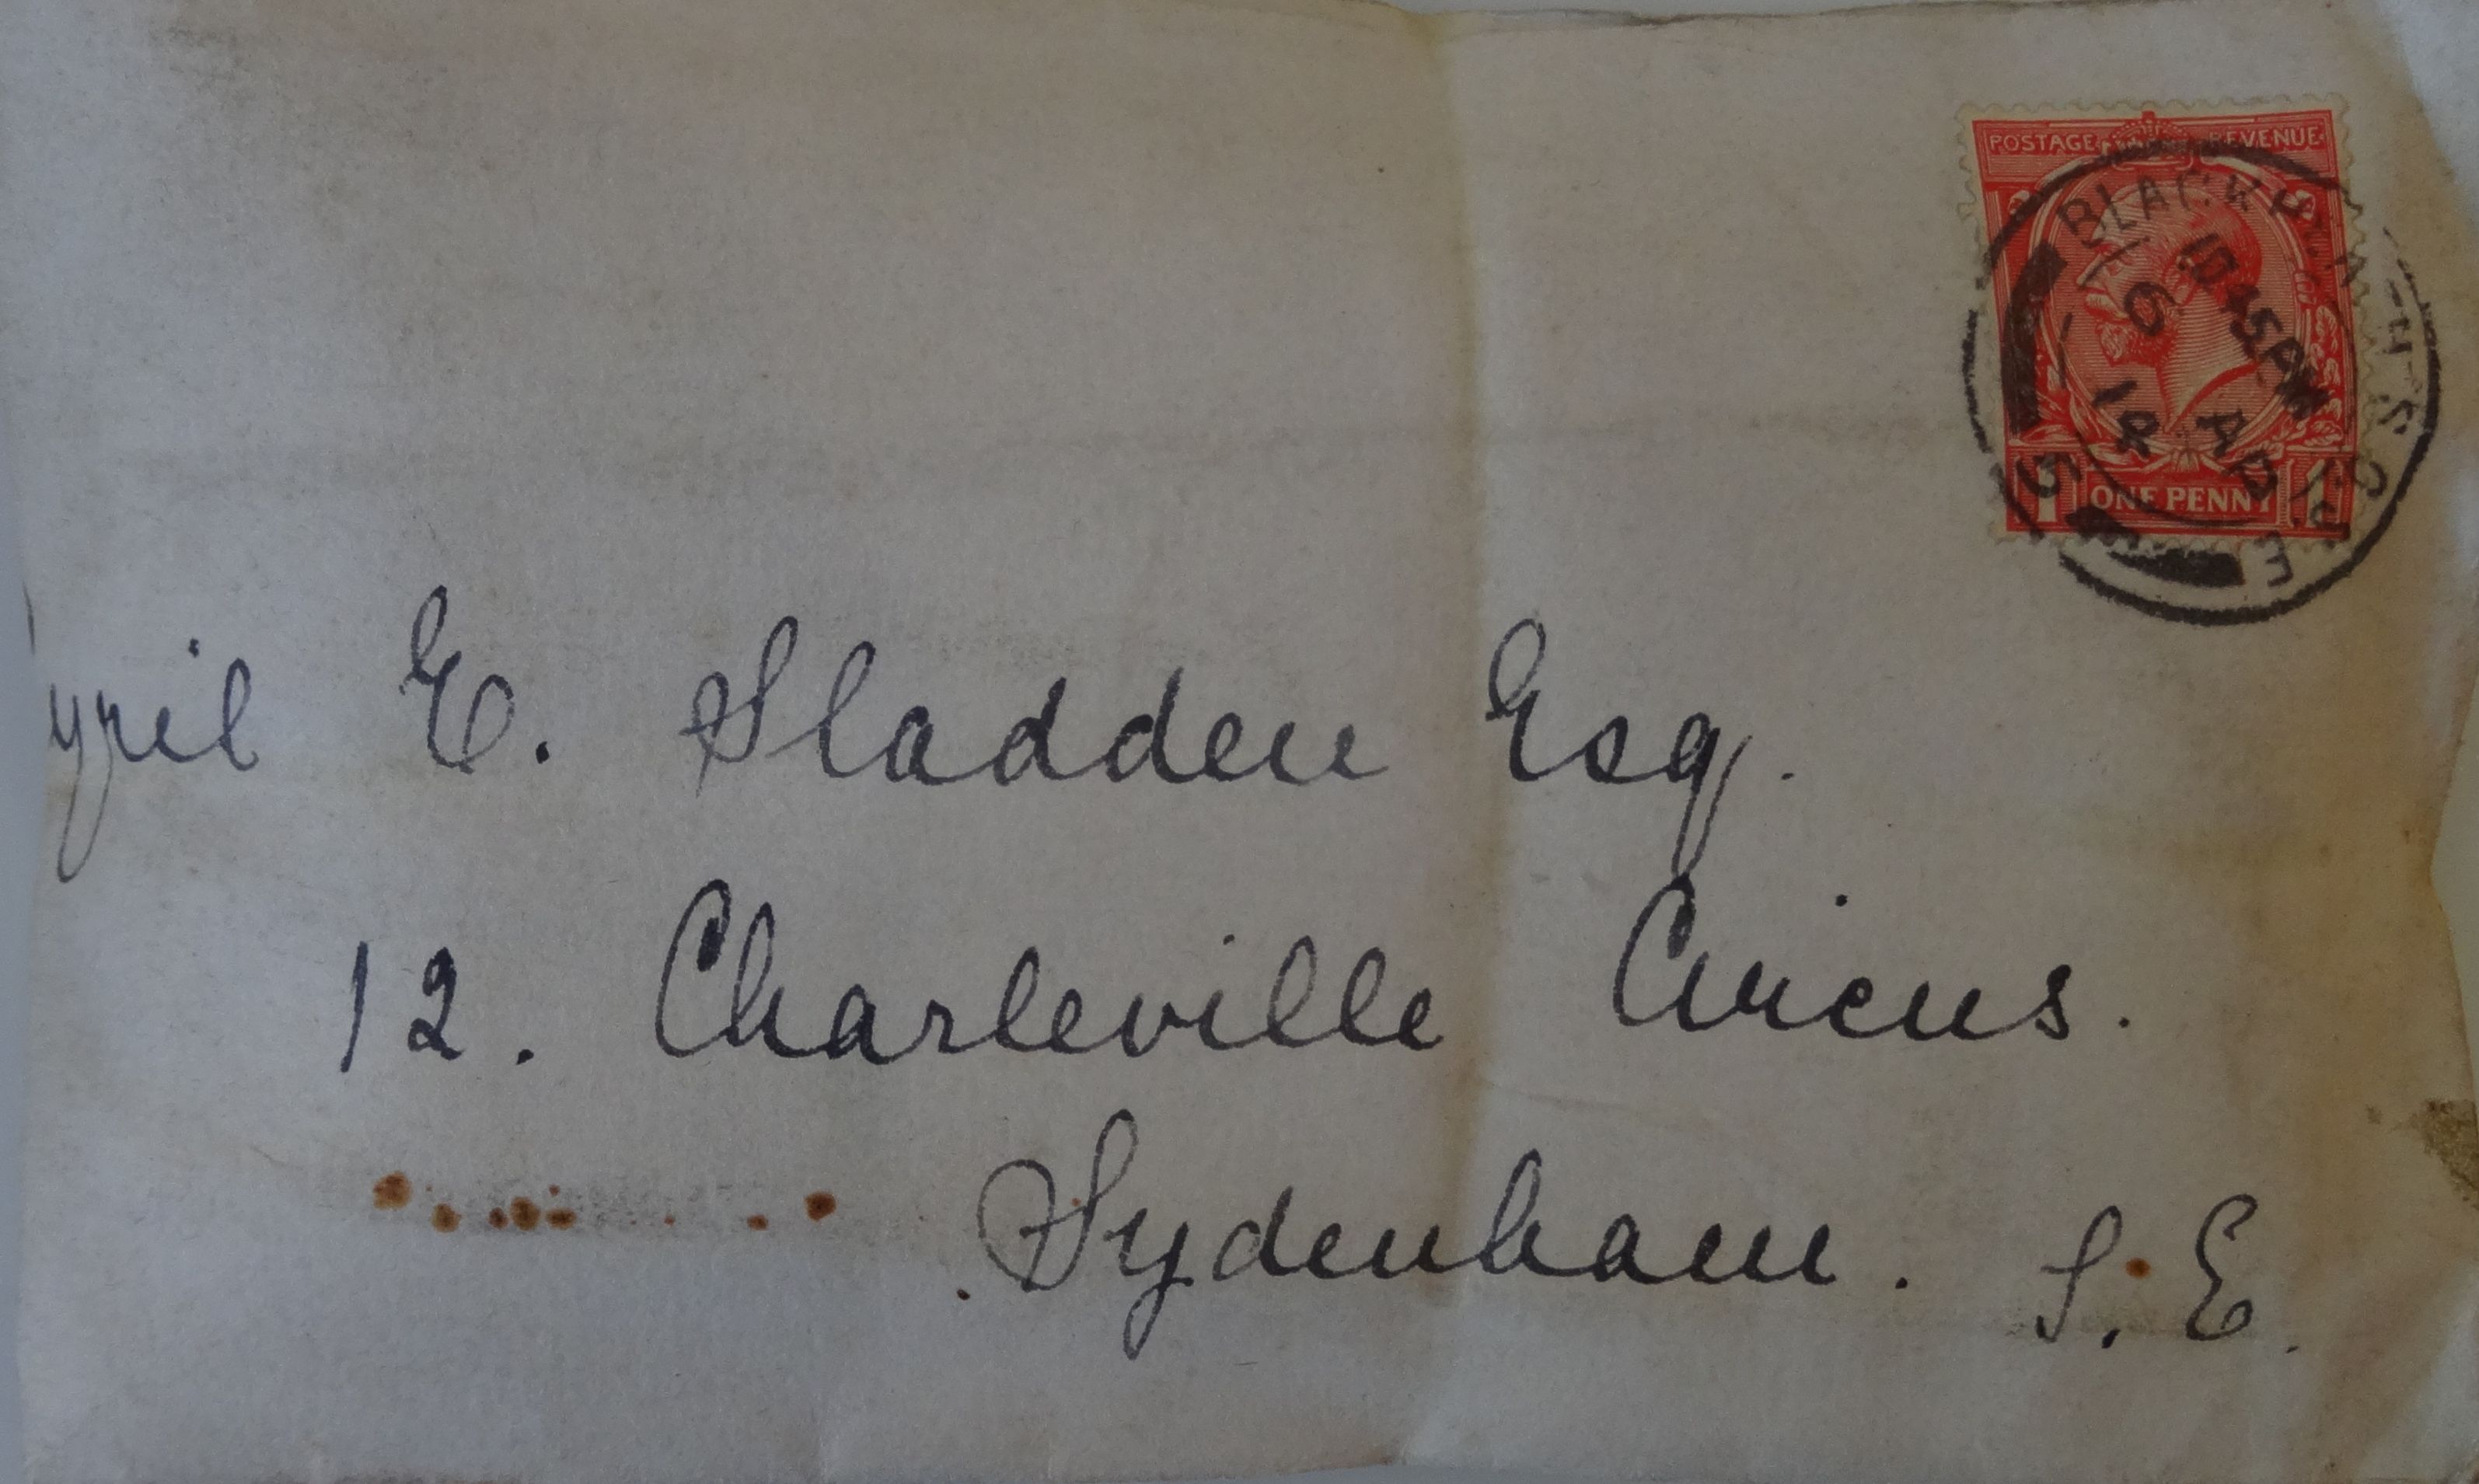 POSTAGE REVENUE
ONE PENNY
BLACKHEATH S.O.
S.E
6 AP
14
yril E. Sladden Esq.
12. Charleville Circus.
Sydenham. S.E.